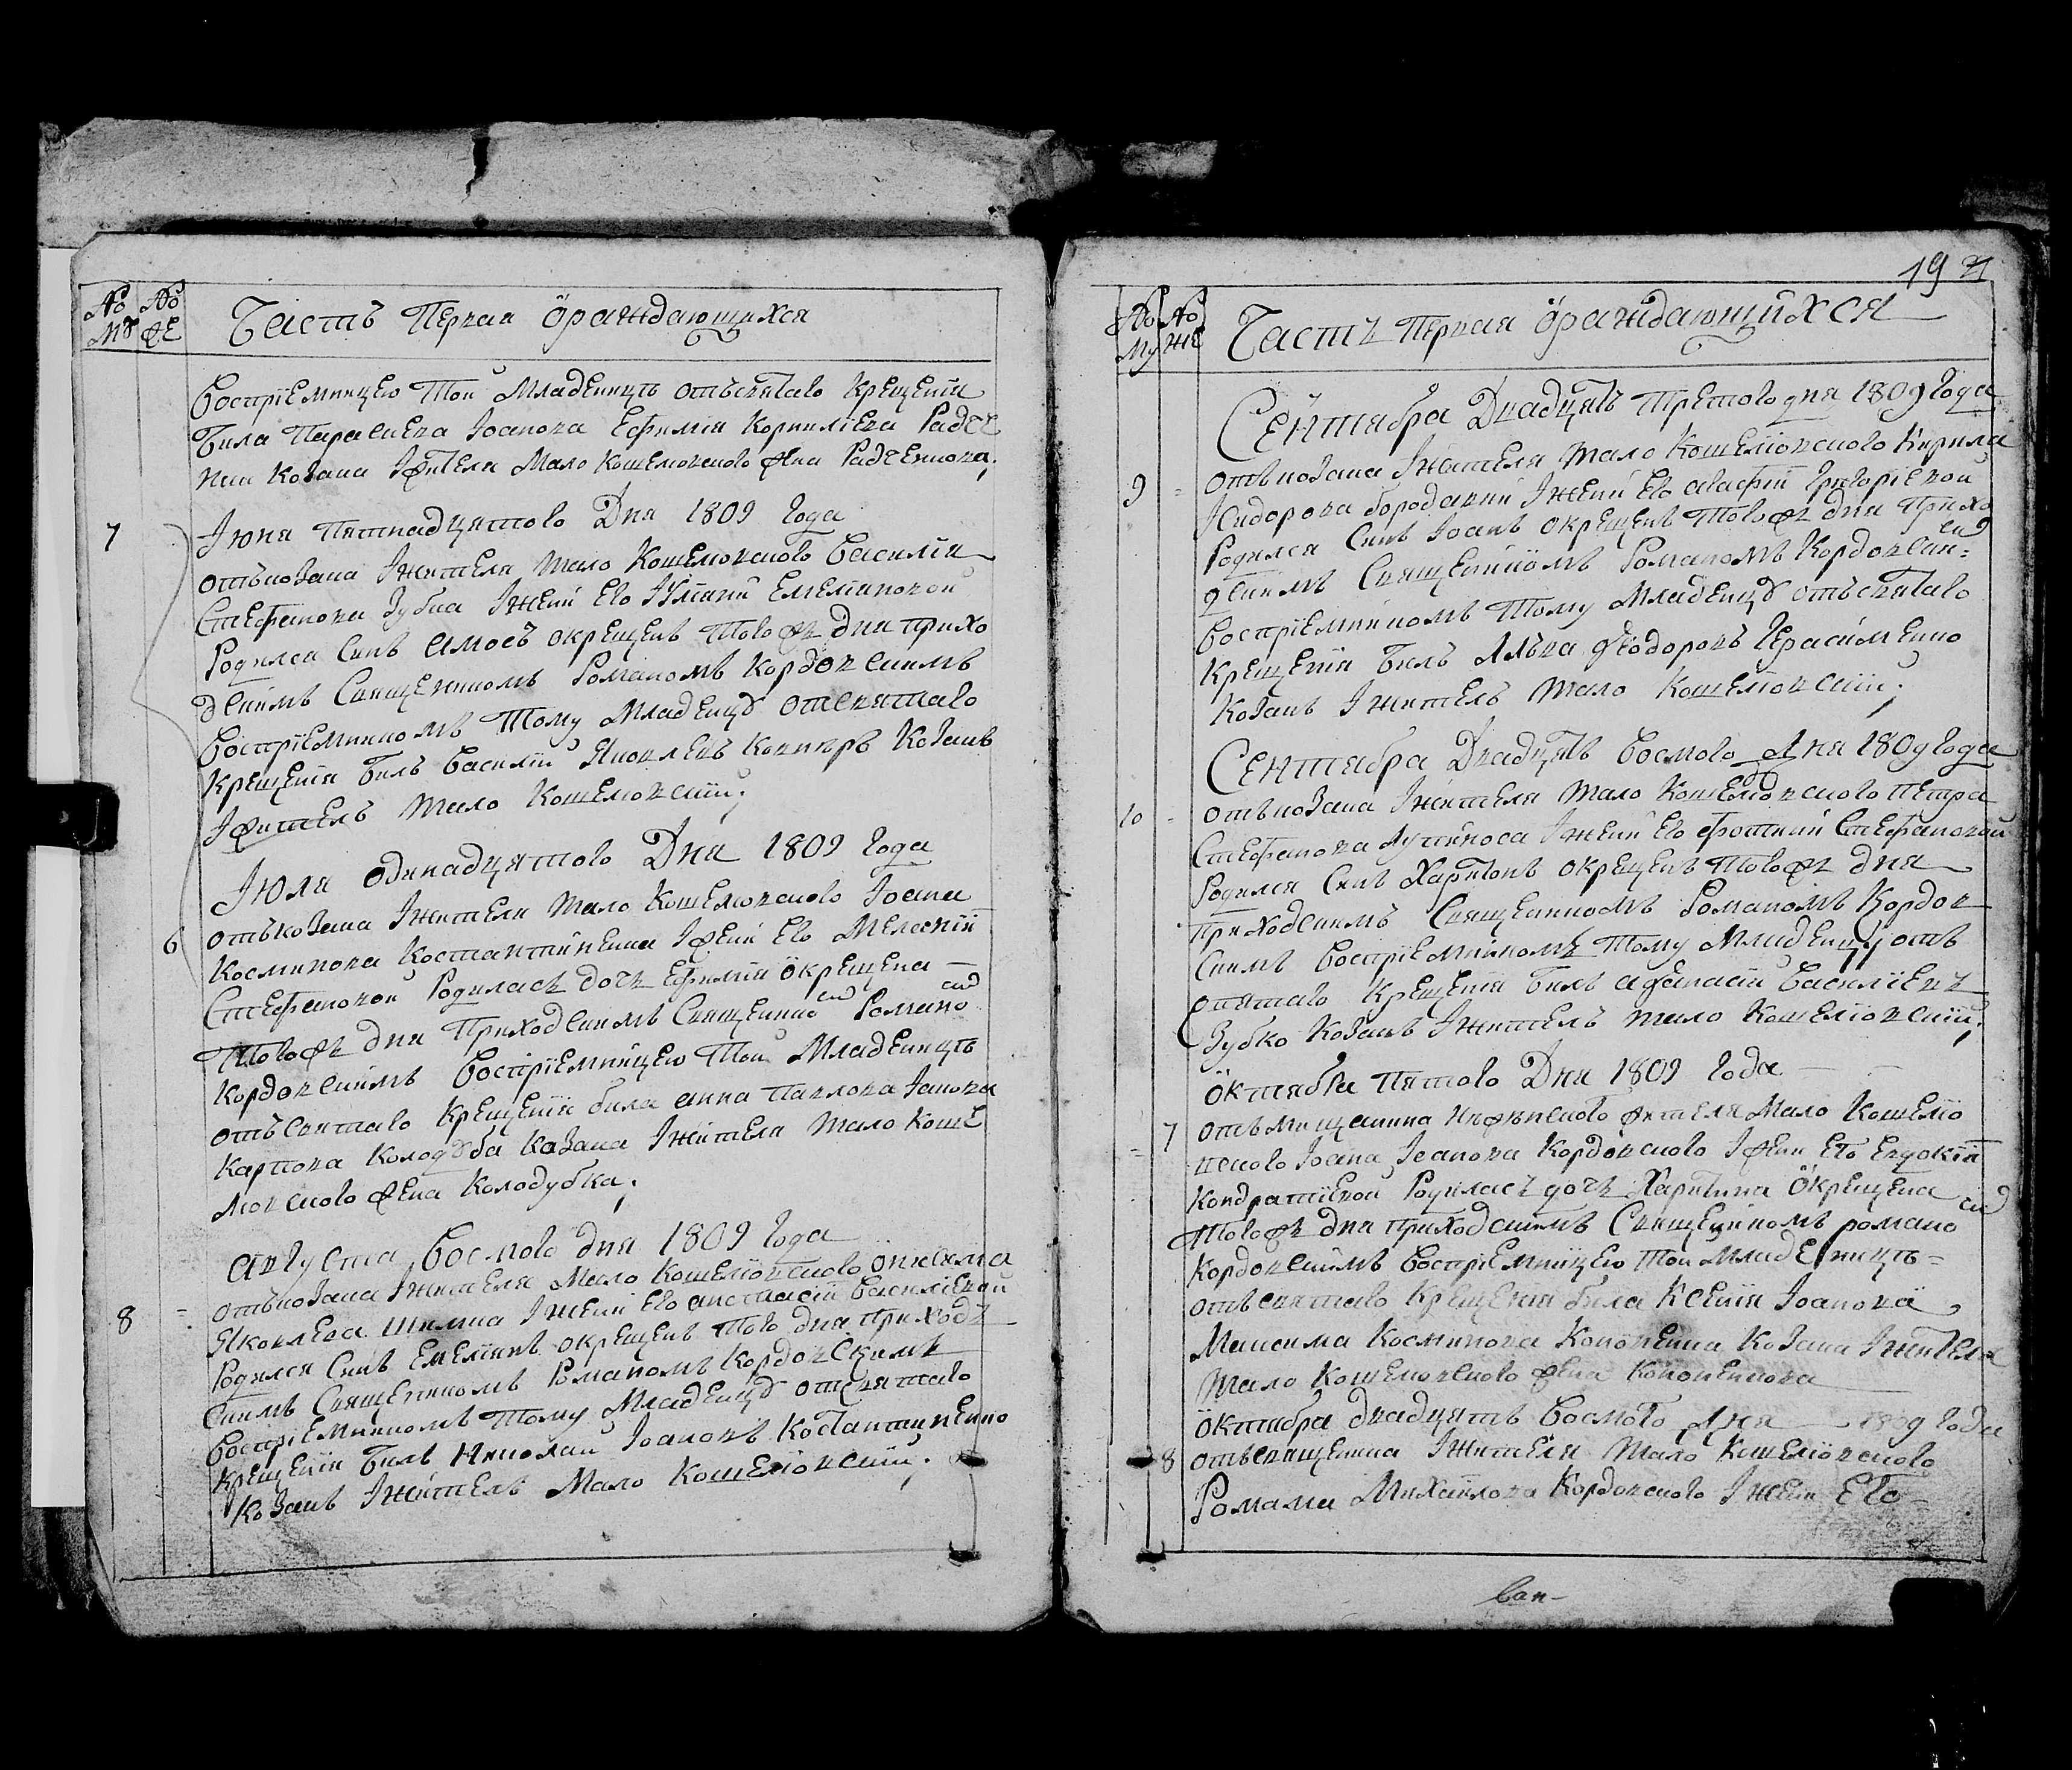 № му № же Часть Первая о раждающихся
Воспріемницею Той Младеницѣ отъ святаго Крещенія
Била Параскева Іоанова Ефимія Корнилѣева Радче
нки Козака Іжителя Мало Кошелювского жена Радченкова;
Іюня Пятнадцятого Дня 1809 Года
7 отъ козака Іжителя Мало Кошелювского Василія
Стефанова Зубка Іжени его Іуліяни Емеліяновой
Родился Синъ Амосъ окрещенъ того жъ дня прихо
дскимъ Священникомъ Романомъ Кордовскимъ
Воспріемникомъ Тому Младенцу от святаго
Крещенія Билъ Василій Яковлевъ Козак
Іжитель Мало Кошелювскій;
Іюля одинадцятого Дня 1809 Года
6 отъ козака Іжителя Мало Кошелювского Іоана
Косминова Костантіненка Іжени его Меласкіи
Стефановой Родилась дочь Ефимія окрещена
Того жъ дня Приходскимъ Священико Романо
Кордовскимъ Воспріемницею Той Младеницѣ
отъ святаго Крещенія била анна Павлова Іанова
Карпова Колодуба Козака Іжителя Мало Коше
лювского жена Колодубка;
Августа Восмого дня 1809 Года
8 отъ козака Іжителя Мало Кошеліовского
Яковлева Іжени его анастасіи Василіевой
Родился Синъ Емеліянъ окрещенъ того дня Приход
скимъ Священикомъ Романомъ Кордовскимъ
Воспріемникомъ тому Младенцу от святаго
Крещенія Билъ Николай Іоановъ Костантиненко
Козакъ Іжитель Мало Кошеліовскій;
19 21
№ му № же Часть Первая о раждающихся
Сентября Двадцять Третого дня 1809 Года
9 отъ козака Іжителя Мало Кошеліовского Кирила
Ісидорова Бородавки Іжени его агафіи Григоріевой
Родился Синъ Іоанъ окрещенъ того жъ дня Прихо
дскимъ Священикомъ Романомъ Кордовским
Воспріемникомъ тому Младенцу отъ святаго
Крещенія Билъ Феодоровъ Герасименко
Козакъ Іжитель Мало Кошеліовскій;
Сентября Двадцять Восмого Дня 1809 Года
10 отъ козака Іжителя Мало Кошеліовского Петра
Стефанова Іжени его Стефановой
Родился Синъ Харитонъ окрещенъ того жъ дня
Приходскимъ Священикомъ Романомъ Кордов
скимъ Воспріемникомъ тому Младенцу отъ
святаго Крещенія Билъ афанасій Василіевъ
Зубко Козакъ Іжитель Мало Кошеліовскій;
Октября Пятого Дня 1809 Года
7 отъ мищанина Нѣжинского жителя Мало Кошеліо
вского Іоана Іоанова Кордовского Іжени его Евдокіи
Кондратіевой Родилась дочь Харитина окрещена
Того жъ дня приходскимъ Священикомъ романо
Кордовскимъ Воспріемницею той Младеницѣ
отъ святаго Крещенія била Ксенія Іоанова
Максима Косминова Кононенка Козака Іжителя
Мало Кошелювского жена Кононенкова
Октября двадцять Восмого Дня 1809 Года
8 отъ священика Іжителя Мало Кошеліовского
Романа Михайлова Кордовского Іжени Его